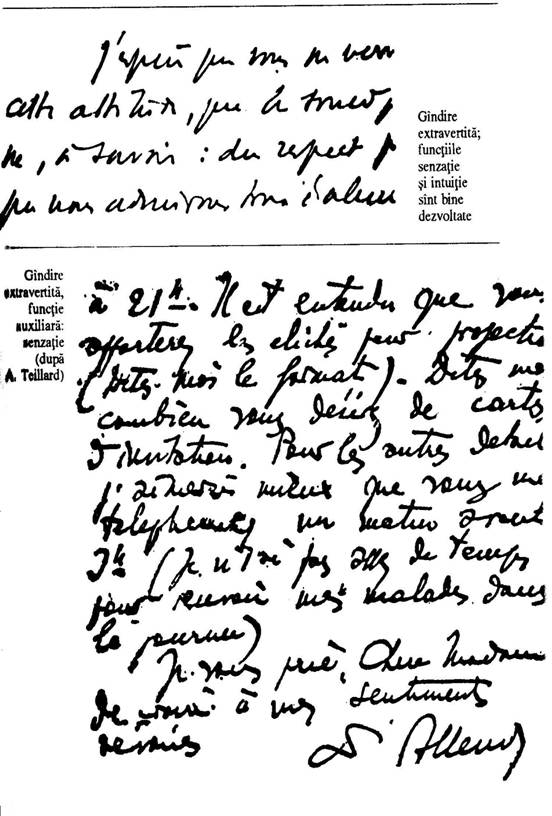 j'espère que vous ne verr
cette attitude, que
ne, à savoir : du respect
que nous admirons
Gîndire
extravertită;
funcțiile
senzație
și intuiție
sînt bine
dezvoltate
Gîndire
extravertită,
funcție
auxiliară:
senzație
(după
A. Teillard)
à 21 h. Il est entendu que vous
apporterez les clichés pour projection
(Dites-moi le format). Dites moi
combien vous désirez de cartes
d'invitation. Pour les autres détails
j'aimerais mieux que vous me
téléphoniez un matin avant
9h (Je n'ai pas assez de temps
pour mes malades dans
la journée)
Je vous prie, Chère Madame
de croire à mes sentiments
dévoués
Dr Allendy